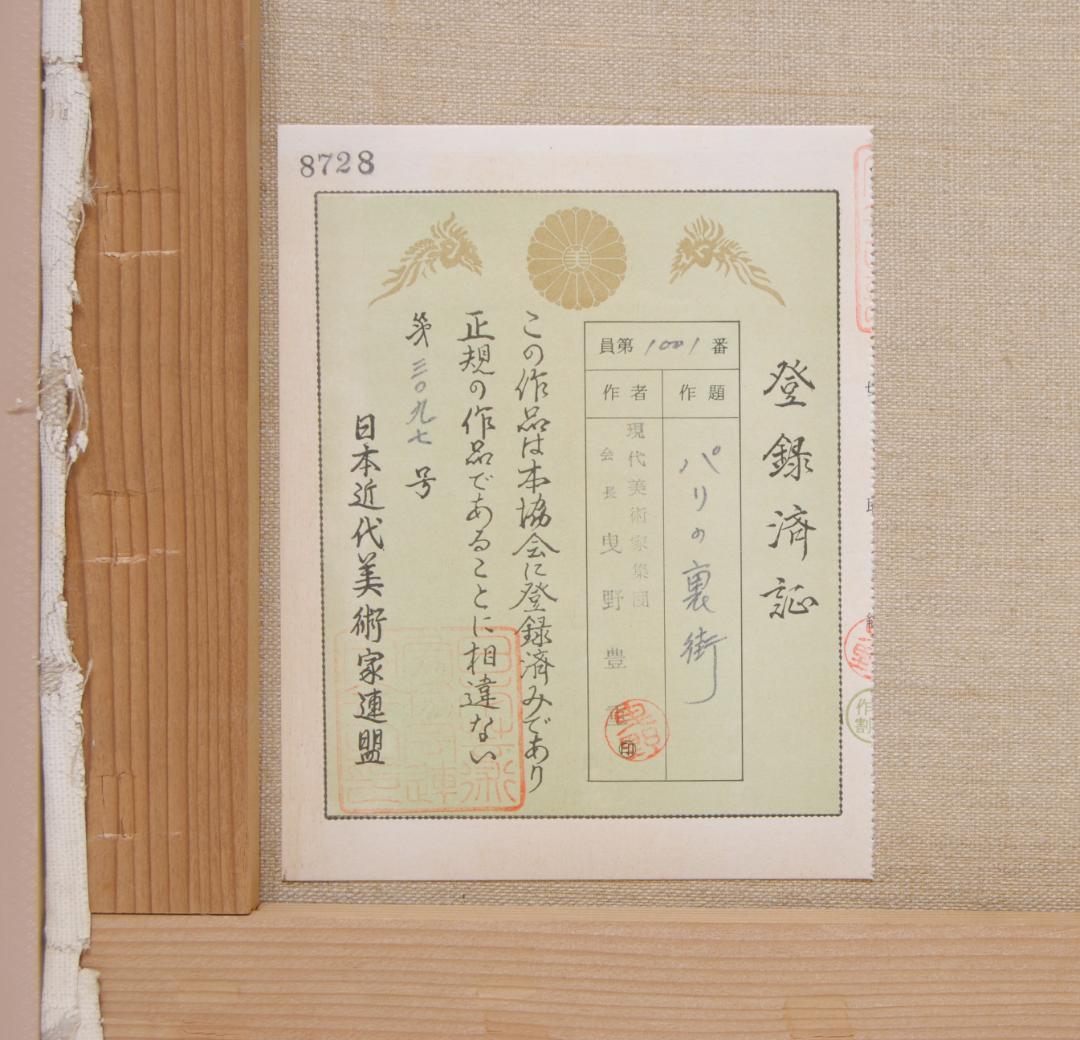 8728
美
登録済証
員第1001番
作題
パリの裏街
作者
現代美術家集団
会長 曳野豊
印
この作品は本協会に登録済みであり
正規の作品であることに相違ない
第三〇九七号
日本近代美術家連盟
作
割